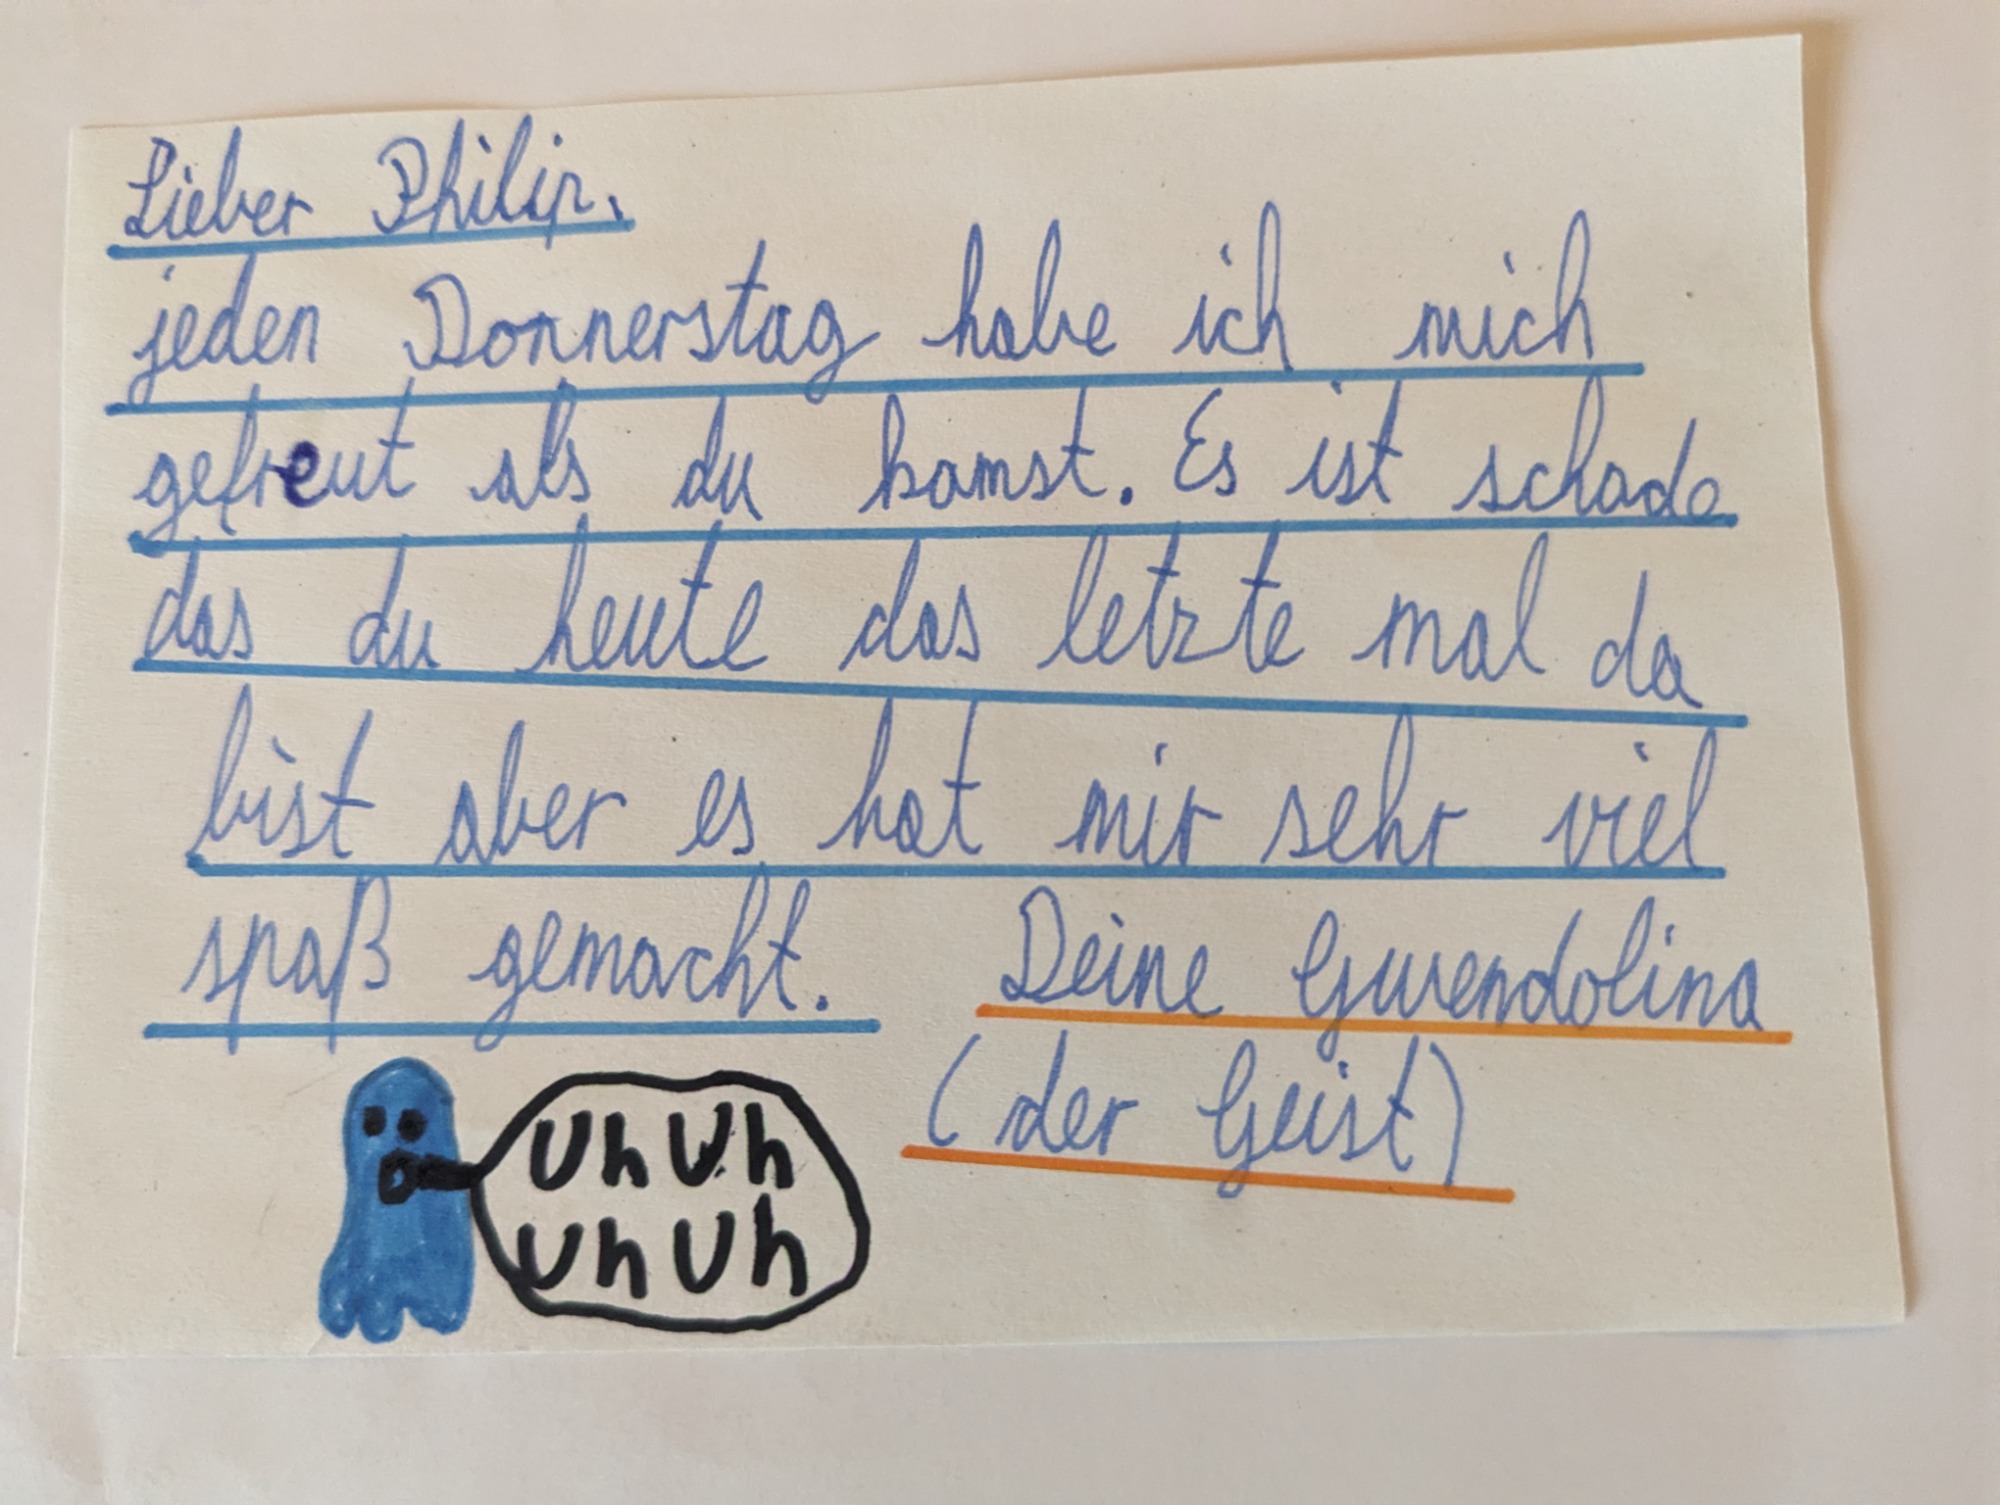 Lieber Philip,
jeden Donnerstag habe ich mich
gefreut als du kamst. Es ist schade
das du heute das letzte mal da
bist aber es hat mir sehr viel
spaß gemacht. Deine Gwendolina
(der Geist)
Uh Uh
Uh Uh